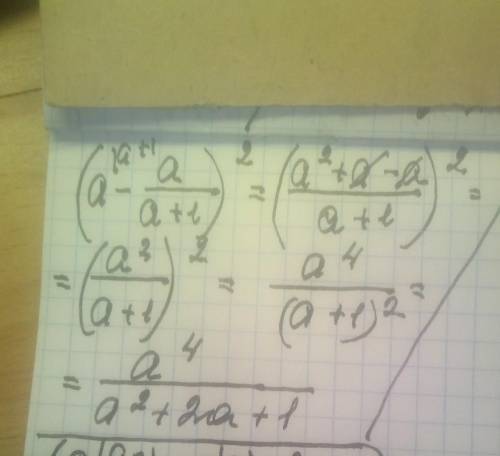 (a^{|a+1} - a/(a+1))^2 = ((a^2+a-a)/(a+1))^2 =
= (a^2/(a+1))^2 = a^4/(a+1)^2 =
= a^4/(a^2+2a+1)